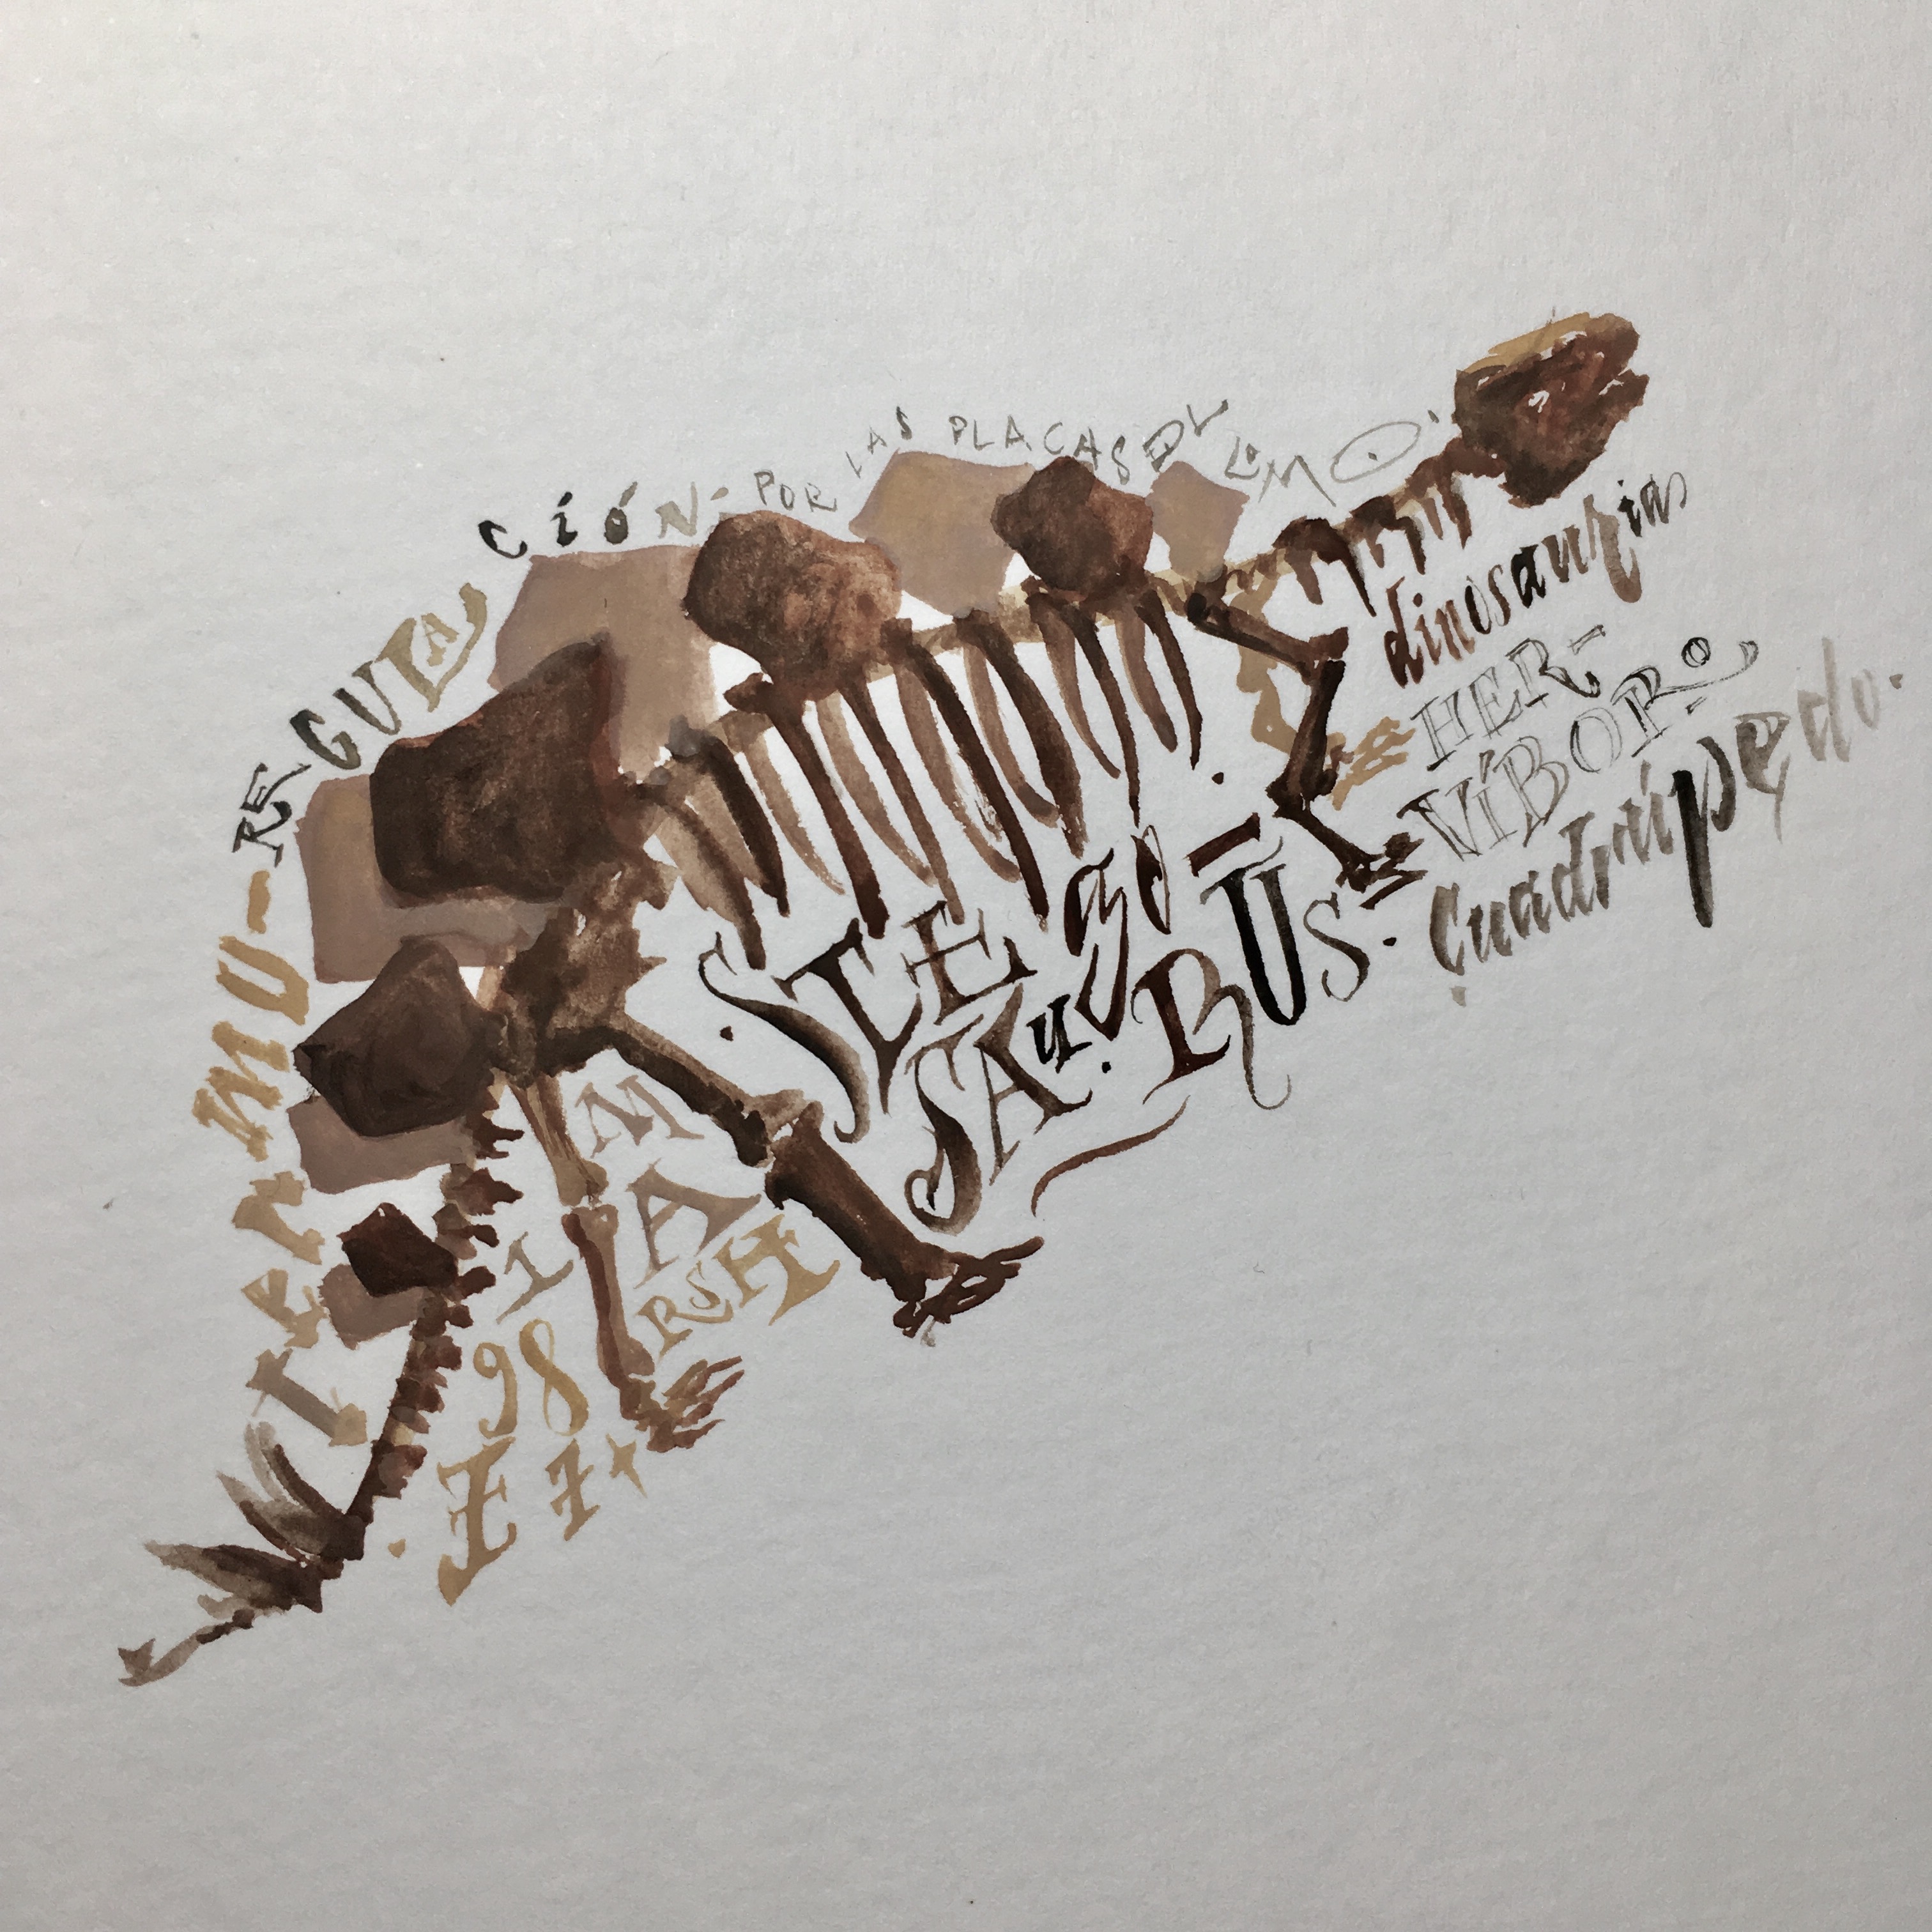 TerMU-REGULACIÓN· POR LAS PLACAS DEL LOMO.
dinosauria
HER-
VÍBORO
Cuadrúpedo.
·STEgo-
SAu·RUS·
M
A
RSH
1
98
77